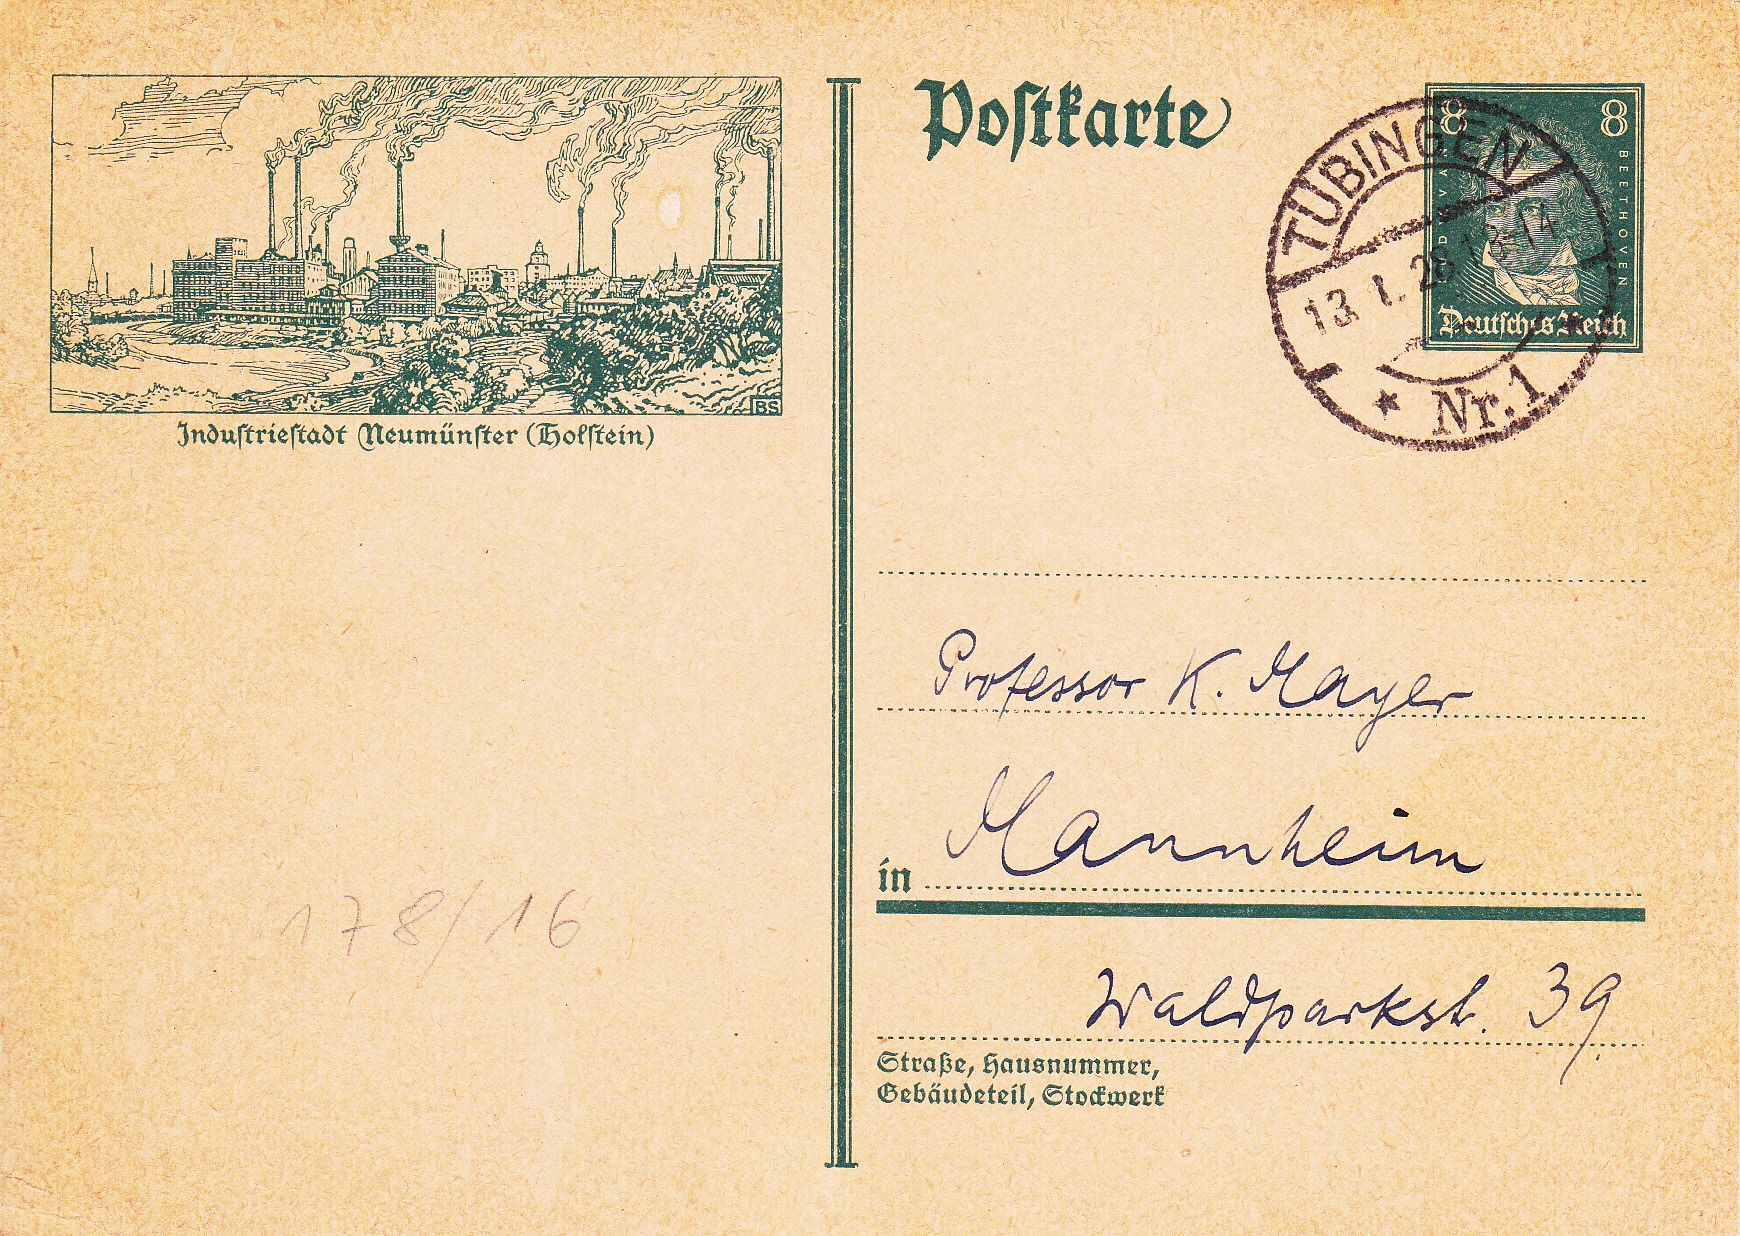 Postkarte
8 8
L. VAN
BEETHOVEN
Deutsches Reich
TÜBINGEN
13.1.28.13-14
* Nr. 1
BS
Industriestadt Neumünster (Holstein)
Professor K. Mayer
in Mannheim
Waldparkstr. 39
Straße, Hausnummer,
Gebäudeteil, Stockwerk
178/16